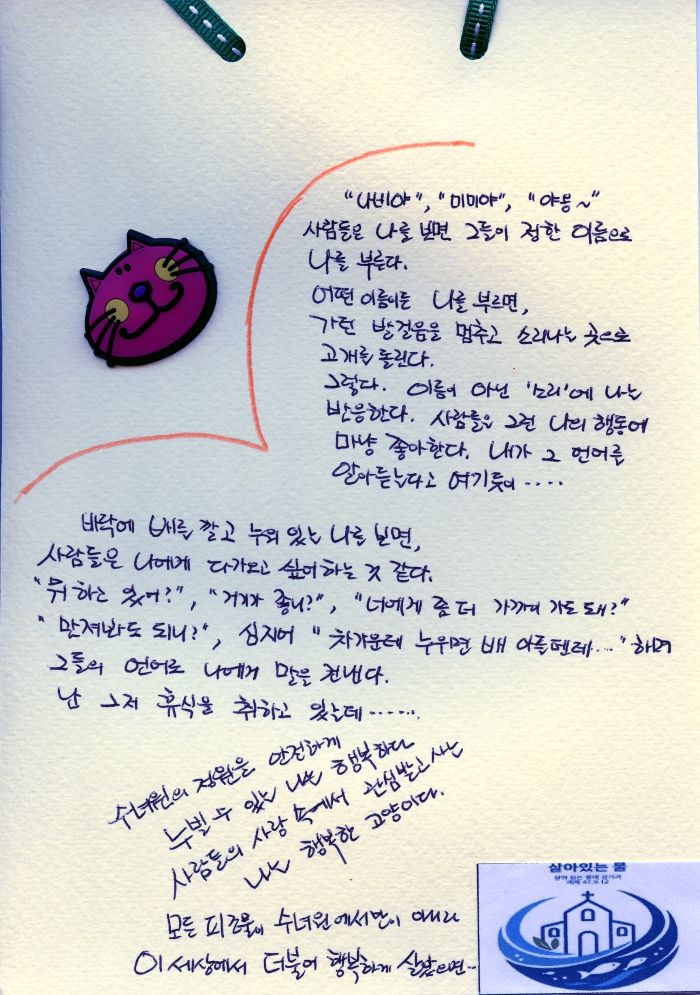 "나비야", "미미야", "야옹~"
사람들은 나를 보면 그들이 정한 이름으로
나를 부른다.
어떤 이름이든 나를 부르면,
가던 발걸음을 멈추고 소리나는 곳으로
고개를 돌린다.
그렇다. 이름이 아닌 '소리'에 나는
반응한다. 사람들은 그런 나의 행동에
마냥 좋아한다. 내가 그 언어를
알아듣는다고 여기듯이....
바닥에 배를 깔고 누워 있는 나를 보면,
사람들은 나에게 다가오고 싶어 하는 것 같다.
"뭐 하고 있어?", "거기가 좋니?", "너에게 좀 더 가까이 가도 돼?"
"만져봐도 되니?", 심지어 "차가운데 누우면 배 아플텐데...." 하며
그들의 언어로 나에게 말을 건넨다.
난 그저 휴식을 취하고 있는데.......
수녀원의 정원을 안전하게
누빌 수 있는 나는 행복하다
사람들의 사랑 속에서 관심받고 사는
나는 행복한 고양이다.
모든 피조물이 수녀원에서만이 아니라
이 세상에서 더불어 행복하게 살았으면...
살아있는 물
47,9.12